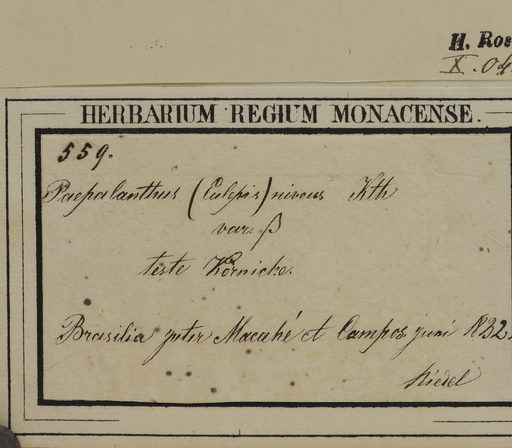 H. Ros
X. 04
HERBARIUM REGIUM MONACENSE.
559.
Paepalanthus (Eulepis) niveus Kth
var. β
teste Körnicke.
Brasilia inter Macahé et Campos juni 1832.
Riedel